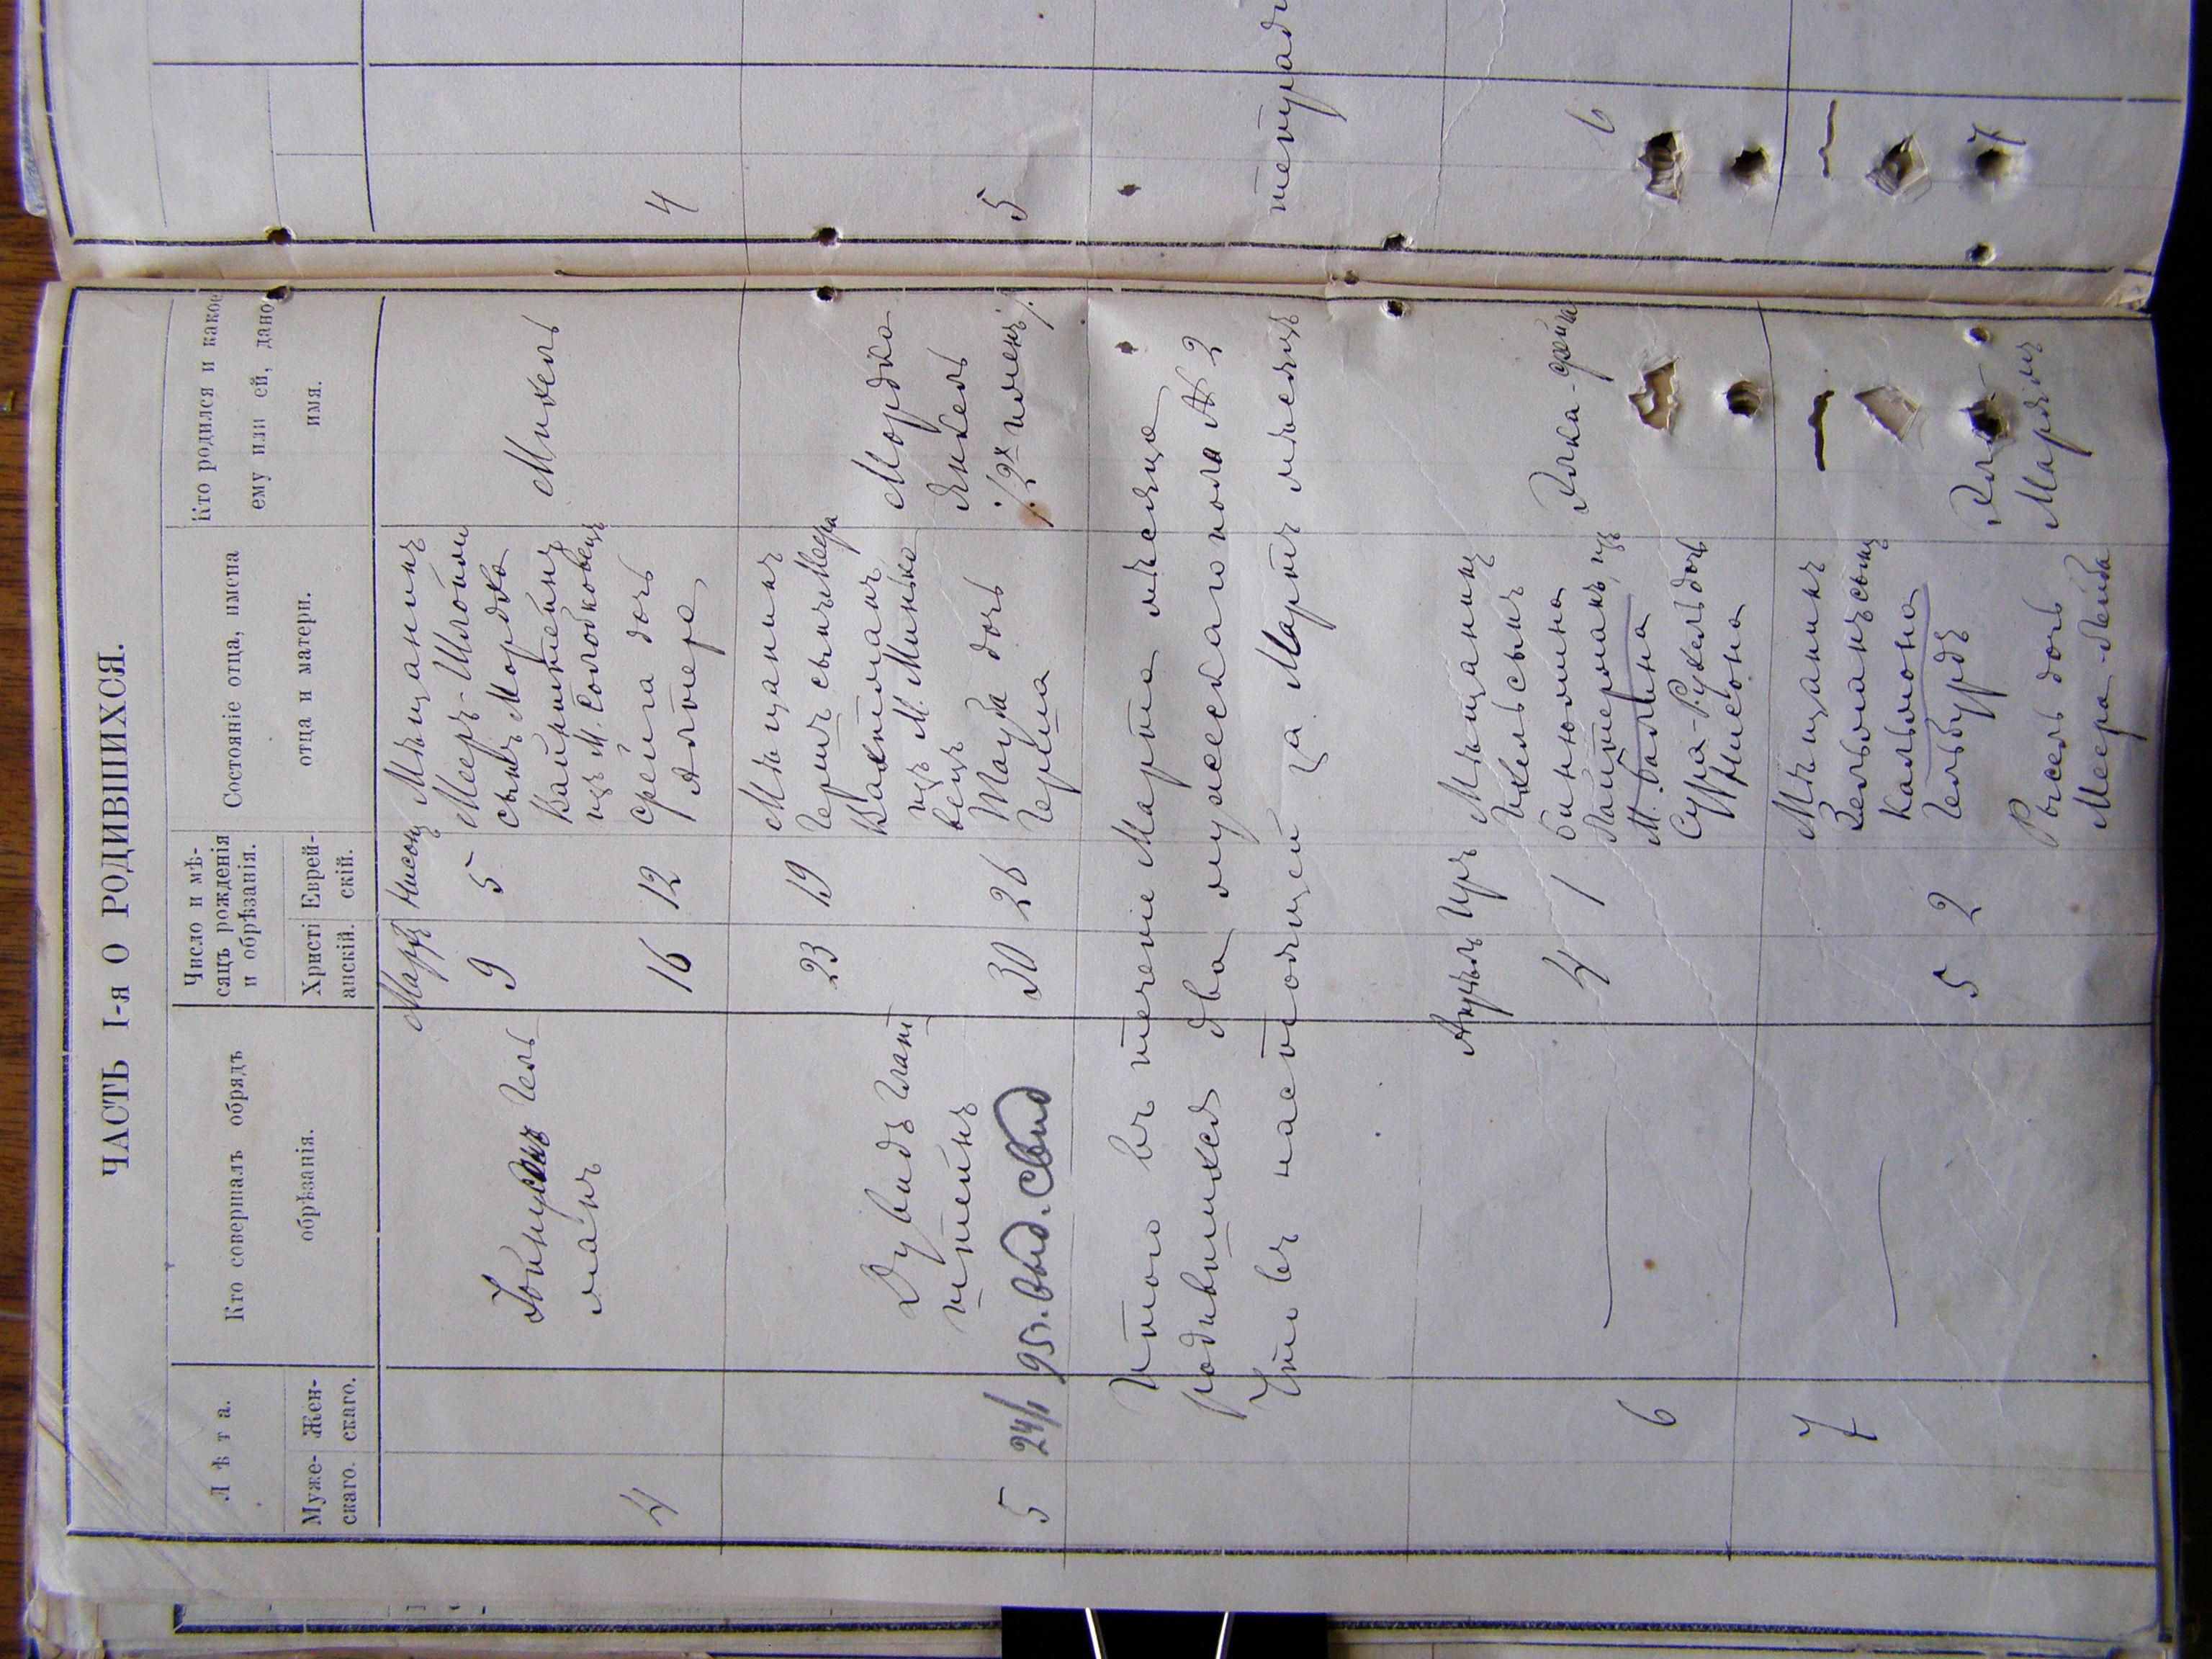 ЧАСТЬ I-я О РОДИВШИХСЯ.
Лѣта.
Муже-
скаго.
Жен-
скаго.
Кто совершалъ обрядъ
обрѣзанія.
Число и мѣ-
сяцъ рожденія
и обрѣзанія.
Христі
анскій.
Еврей-
скій.
Состояніе отца, имена
отца и матери.
Кто родился и какое
ему или ей, дано
имя.
4
Гель
манъ
Мартъ
9
16
Нисонъ
5
12
Мѣщанинъ
Мееръ-Шлойми
сынъ Мордка
Вайнштейнъ
изъ М. Солобковецъ
Фрейма дочь
Алтера
Михель
4
5
24/I 95 г. выд. свид
Дувидъ Глант
штейнъ
23
30
19
26
Мѣщанинъ
Гершъ сынъ Меера
Вахтманъ
изъ М. Минько
вецъ
Тауба дочь
Герша
Мордко
Янкель
/: 2х именъ :/
5
Итого въ теченіе Марта мѣсяца
родившихся два мужескаго пола № 2
Что въ настоящей за Мартъ мѣсяцъ
тетрад
6
Апрѣль
4
Иръ
1
Мѣщанинъ
Ихель сынъ
Бинюмина
изъ
М. Балина
Сура-Рухель дочь
Нисона
6
7
5
2
Мѣщанинъ
Зельманъ сынъ
Кальмона
Гельбурдъ
Рысель дочь
Меера-Лейба
Марьямъ
7